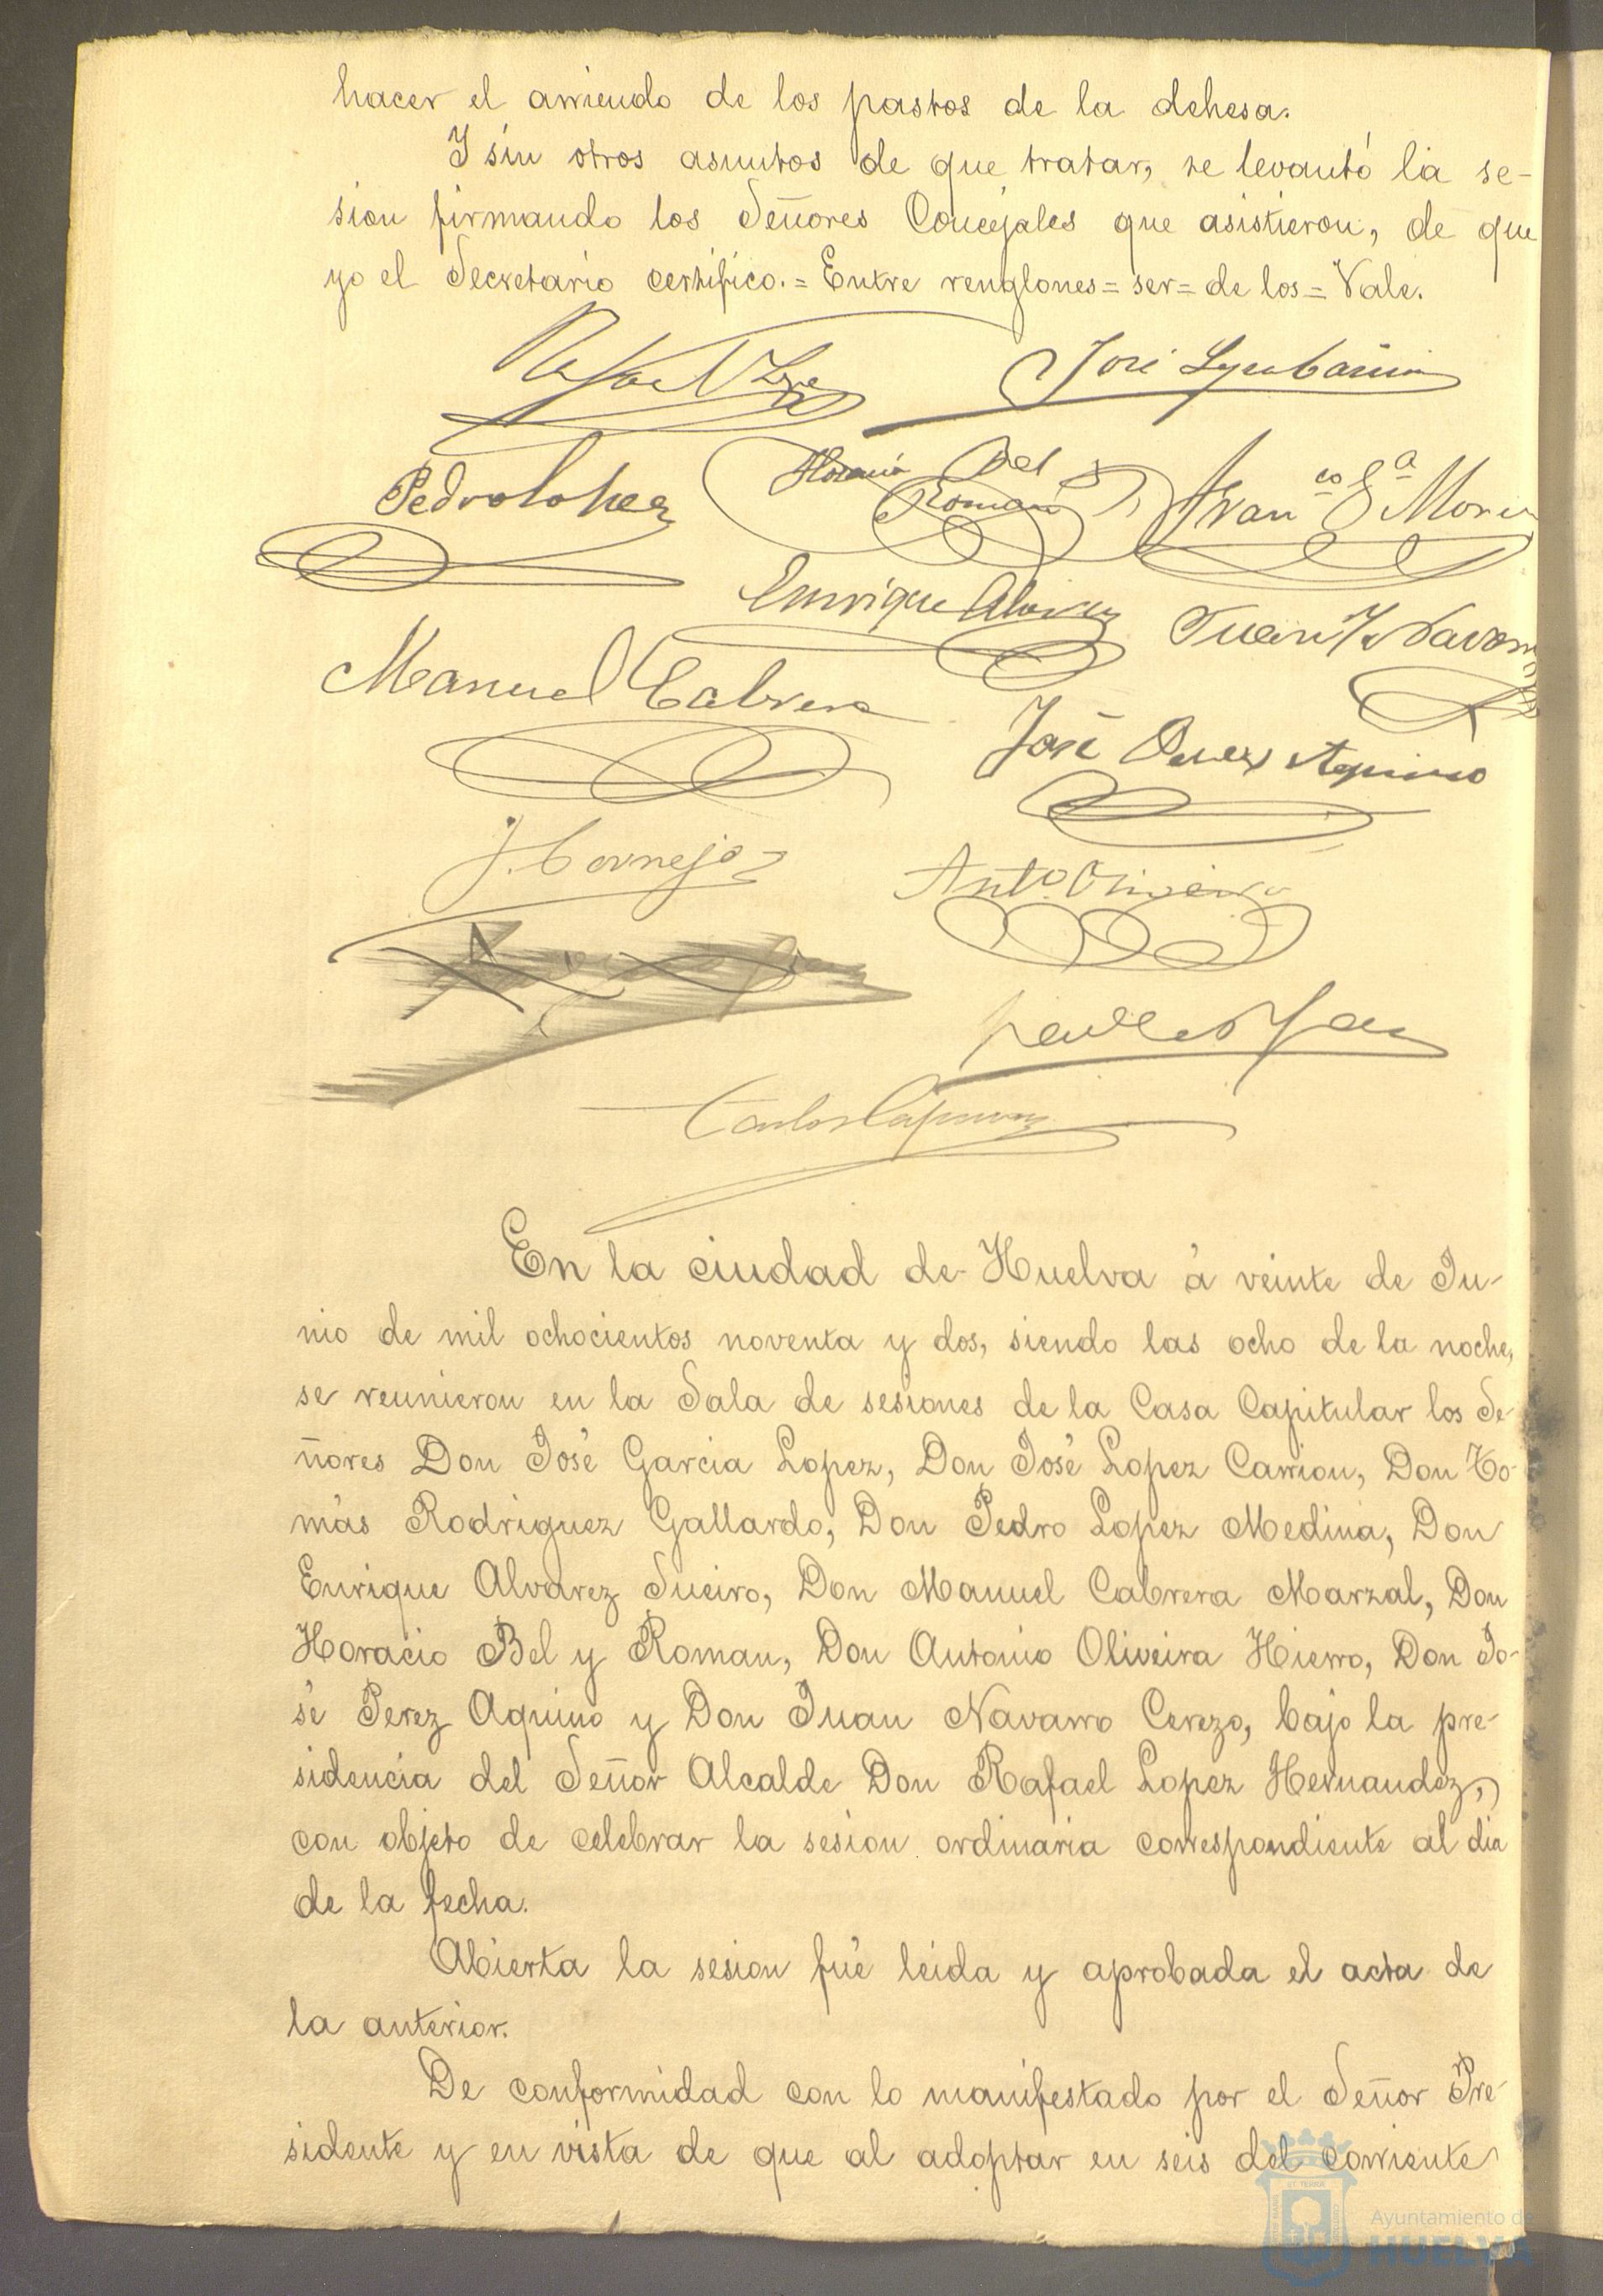 hacer el arriendo de los pastos de la dehesa.
Y sin otros asuntos de que tratar, se levantó la se-
sion firmando los Señores Concejales que asistieron, de que
yo el Secretario certifico.= Entre renglones= ser= de los= Vale.
Rafael
José
Pedro Lopez
Horacio Bel
Roman
Franco Ga Mor
Enrrique Alvarez
Juan Navarro
Manuel Cabrera
José Perez Aquino
J. Cornejo
Anto Oliveira
Carlos
En la ciudad de Huelva á veinte de Ju-
nio de mil ochocientos noventa y dos, siendo las ocho de la noche,
se reunieron en la Sala de sesiones de la Casa Capitular los Se-
ñores Don José Garcia Lopez, Don José Lopez Carrion, Don To-
más Rodriguez Gallardo, Don Pedro Lopez Medina, Don
Enrique Alvarez Sueiro, Don Manuel Cabrera Marzal, Don
Horacio Bel y Roman, Don Antonio Oliveira Hierro, Don Jo-
sé Perez Aquino y Don Juan Navarro Cerezo, bajo la pre-
sidencia del Señor Alcalde Don Rafael Lopez Hernandez,
con objeto de celebrar la sesion ordinaria correspondiente al dia
de la fecha.
Abierta la sesion fué leida y aprobada el acta de
la anterior.
De conformidad con lo manifestado por el Señor Pre-
sidente y en vista de que al adoptar en seis del corriente
Ayuntamiento de
HUELVA